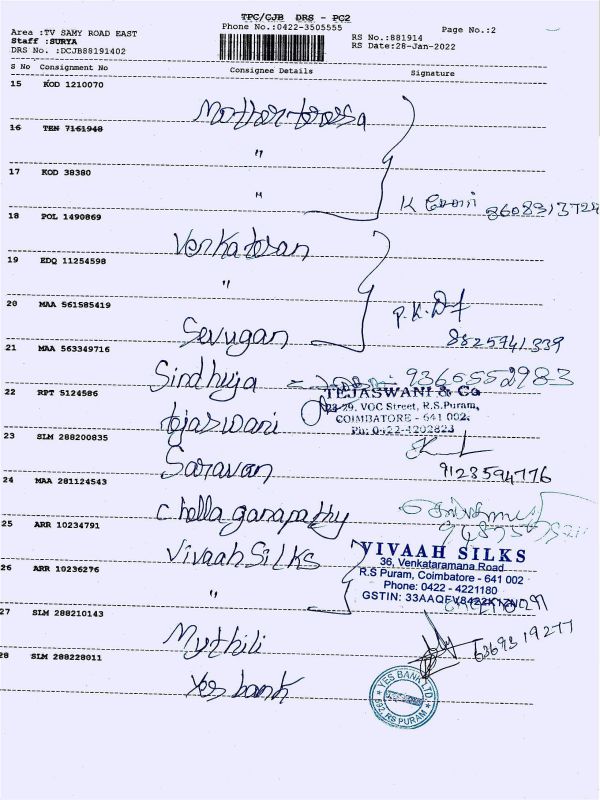 TPC/CJB DRS - PC2
Phone No.:0422-3505555
Page No.:2
Area :TV SAMY ROAD EAST
Staff :SURYA
DRS No. :DCJB88191402
RS No.:881914
RS Date:28-Jan-2022
S No Consignment No Consignee Details Signature
15 KOD 1210070
Mother teressa
16 TEN 7161948
"
17 KOD 38380
"
K 8608313724
18 POL 1490869
Venkatesan
19 EDQ 11254598
"
20 MAA 561585419
P.K.
Sevugan 8825941339
21 MAA 563349716
Sindhuja = 9360552983
22 RPT 5124586
TEJASWANI & Co
23-29, VOC Street, R.S.Puram,
COIMBATORE - 641 002.
Ph: 0422-4202823
tejaswani
23 SLM 288200835
Saravan 9123594776
24 MAA 281124543
Chella ganapathy
25 ARR 10234791
Vivaah Silks
VIVAAH SILKS
36, Venkataramana Road
R.S Puram, Coimbatore - 641 002
Phone: 0422 - 4221180
GSTIN:
26 ARR 10236276
"
27 SLM 288210143
Mythili 6369319277
28 SLM 288228011
Yes bank
YES BANK LTD.
692, RS PURAM